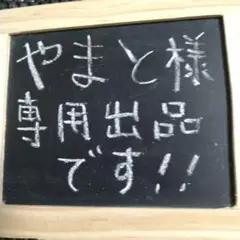 やまと様
専用出品
です!!